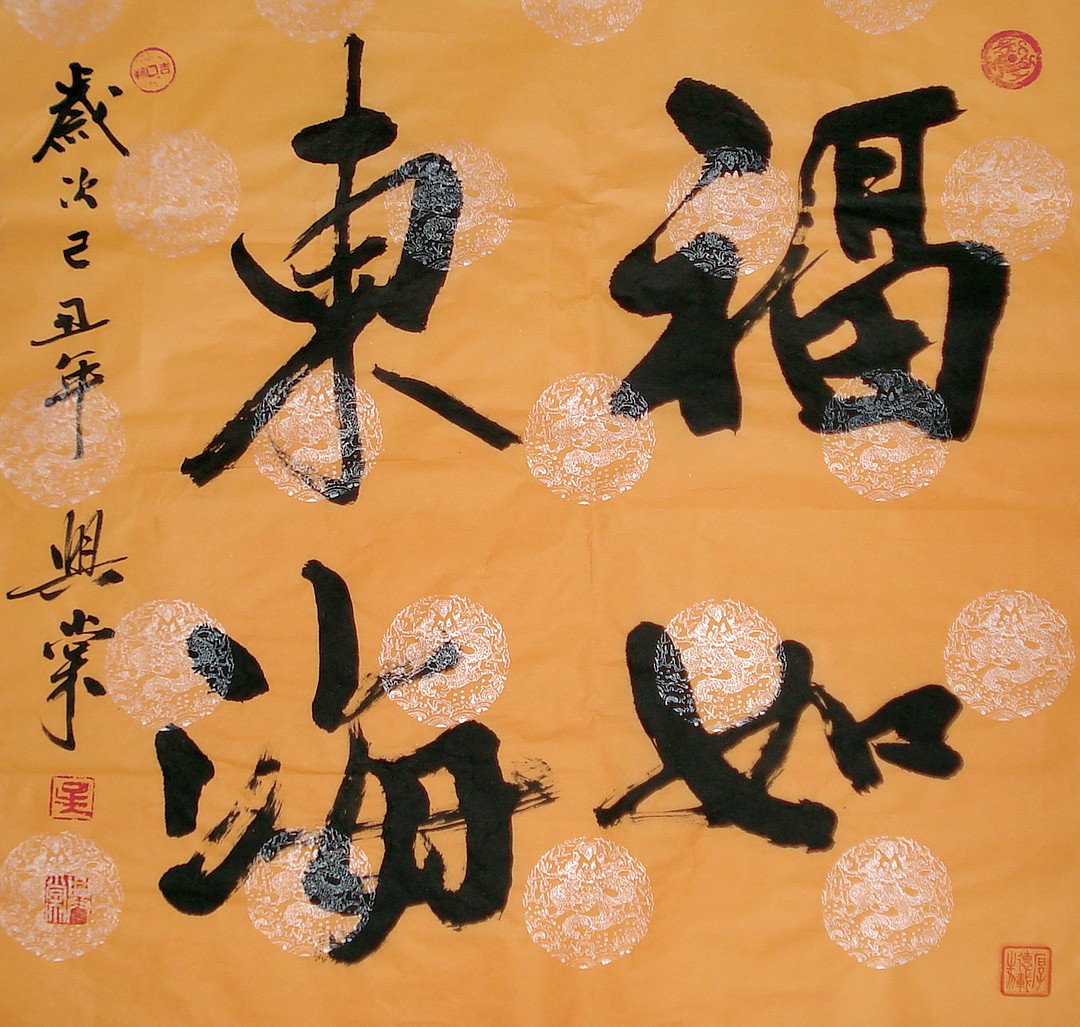 福如
東海
歲次己丑年 興棠